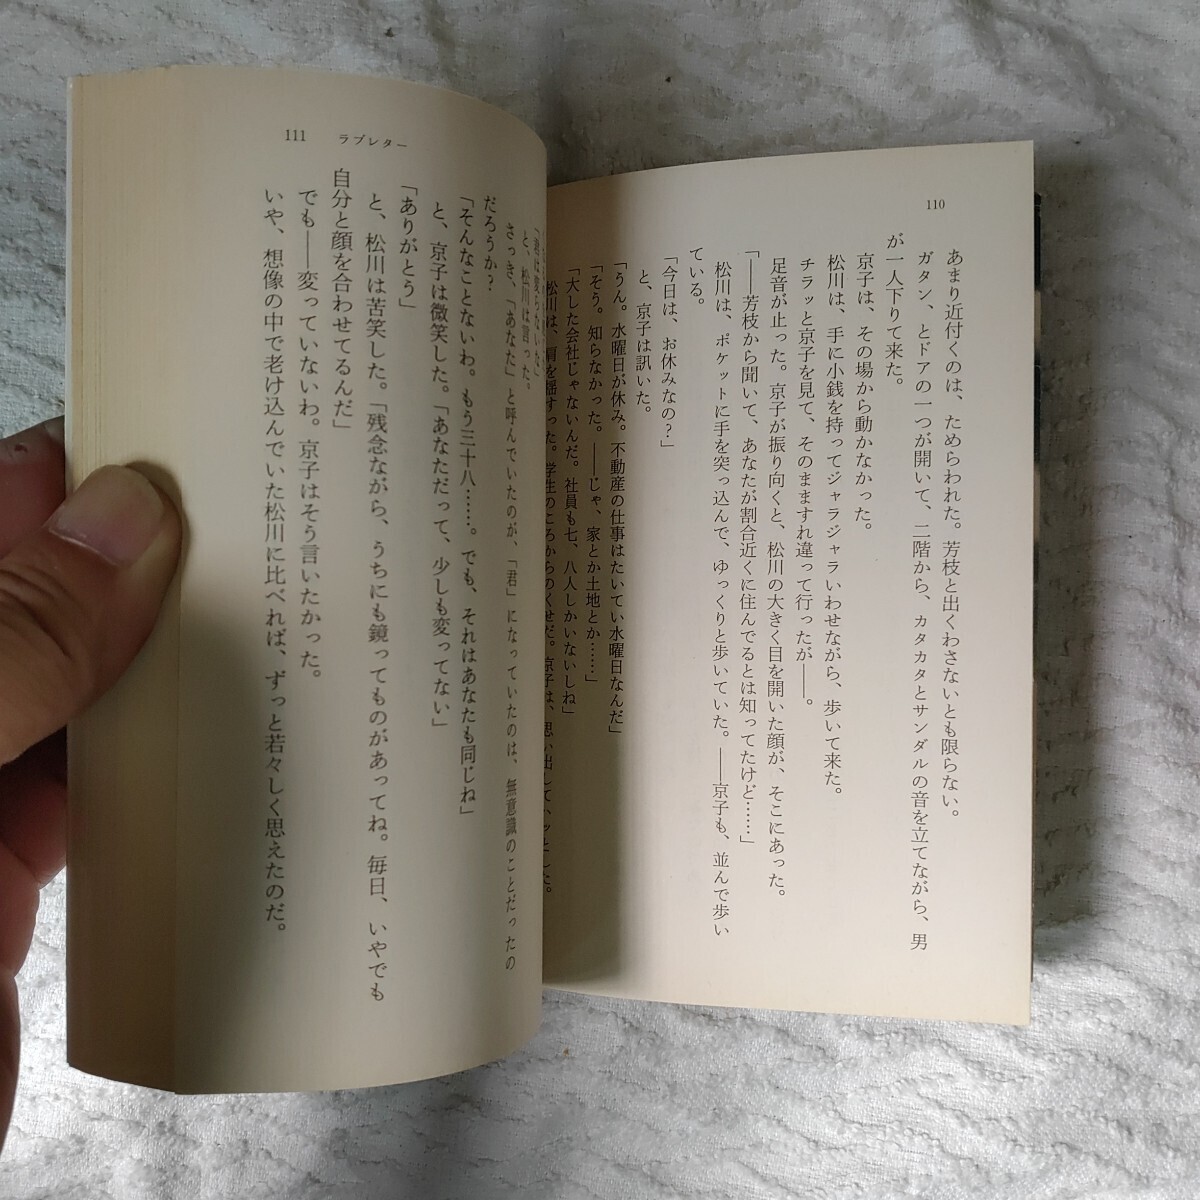 110
あまり近付くのは、ためらわれた。芳枝と出くわさないとも限らない。
ガタン、とドアの一つが開いて、二階から、カタカタとサンダルの音を立てながら、男
が一人下りて来た。
京子は、その場から動かなかった。
松川は、手に小銭を持ってジャラジャラいわせながら、歩いて来た。
チラッと京子を見て、そのまますれ違って行ったが——。
足音が止った。京子が振り向くと、松川の大きく目を開いた顔が、そこにあった。
「——芳枝から聞いて、あなたが割合近くに住んでるとは知ってたけど……」
松川は、ポケットに手を突っ込んで、ゆっくりと歩いていた。——京子も、並んで歩い
ている。
「今日は、お休みなの?」
と、京子は訊いた。
「うん。水曜日が休み。不動産の仕事はたいてい水曜日なんだ」
「そう。知らなかった。——じゃ、家とか土地とか……」
「大した会社じゃないんだ。社員も七、八人しかいないしね」
松川は、肩を揺すった。学生のころからのくせだ。京子は、思い出して、
111 ラブレター
「君は変らないた」
と、松川は言った。
さっき、「あなた」と呼んでいたのが、「君」になっていたのは、無意識のことだったの
だろうか?
「そんなことないわ。もう三十八……。でも、それはあなたも同じね」
と、京子は微笑した。「あなただって、少しも変ってない」
「ありがとう」
と、松川は苦笑した。「残念ながら、うちにも鏡ってものがあってね。毎日、いやでも
自分と顔を合わせてるんだ」
でも——変っていないわ。京子はそう言いたかった。
いや、想像の中で老け込んでいた松川に比べれば、ずっと若々しく思えたのだ。